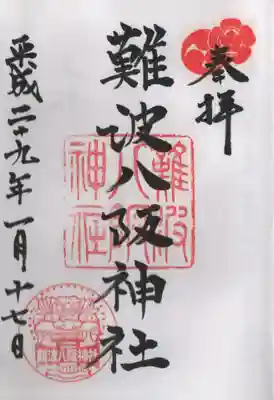 奉拝
難波八阪神社
難波八阪神社
平成二十九年一月十七日
難波八阪神社